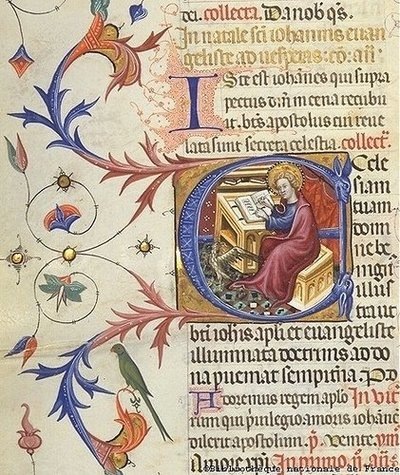 dei. collecta. Da nob' q̄s.
In natale sc̄i iohannis euan
geliste ad uesperas: an̄:
Iste est ioh̄nes qui supra
pectus dn̄i in cena recubu
it. bt̄us apostolus cui reue
lata sunt secreta celestia. collect.
Eccle
siam
tuam
dom
ine be
nign'
illus
tra ut
bt̄i ioh̄is apl̄i et euangeliste
illuminata doctrinis ad do
na pueniat sempit̄na. P d
Adoremus regem aplo.
rum qui priuilegio amoris iohāne
dilexit apostolum. p̄. Venite.
In primo an̄:
©Bibliothèque nationale de France